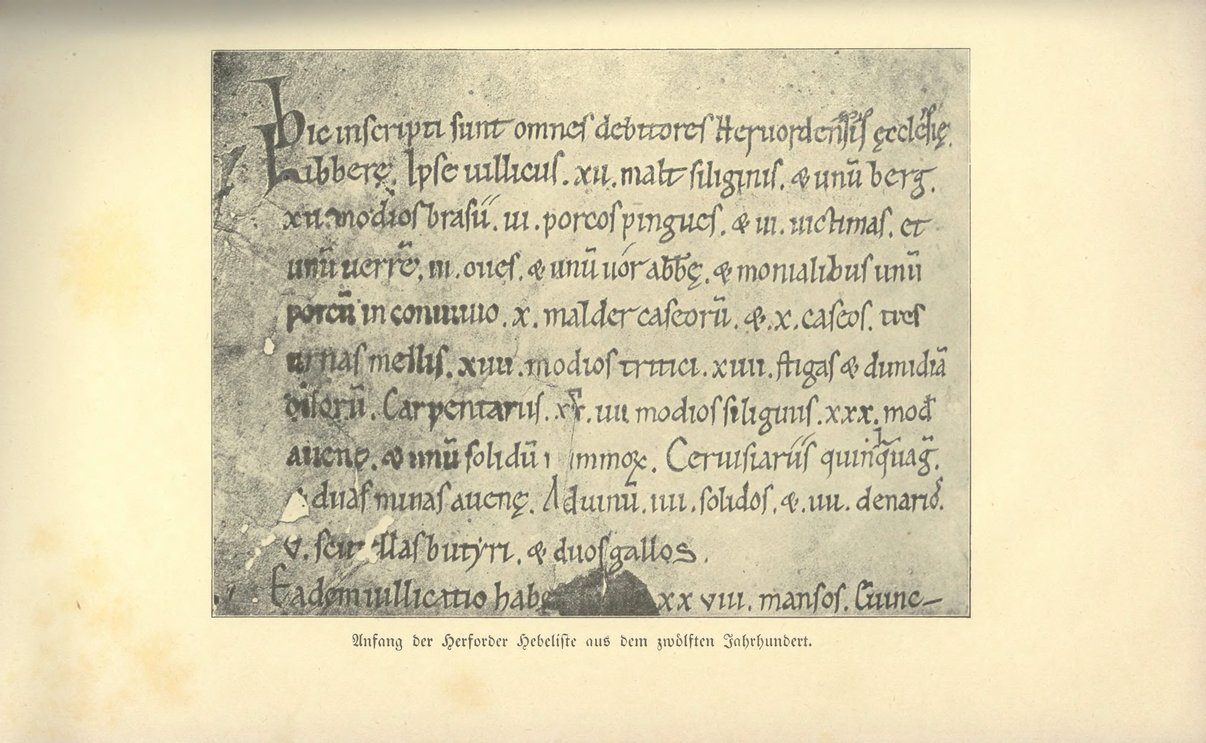 Hic inscripti sunt omnes debitores Heruordensis ęcclesię.
Libberę. Ipse uillicus. xii. malt siliginis. & unū berg.
xii. modios brasii. iii. porcos pingues. & iii. uictimas. et
unū uerrē. iii. oues. & unū abbę. & monialibus unū
porcū in conuiuio. x. malder caseorū. & .x. caseos. tres
urnas mellis. xiiii. modios tritici. xiiii. stigas & dimidiā
. Carpentarius. modios siliginis. xxx. mod
auenę. & unū solidū. Ceruisiarii quinquag.
duas minas auenę. Ad uinū. iiii. solidos. & . iiii. denarios.
v. butyri. & duos gallos.
Eadem uillicatio xx viii. mansos. Gunc-
Anfang der Herforder Hebeliste aus dem zwölften Jahrhundert.